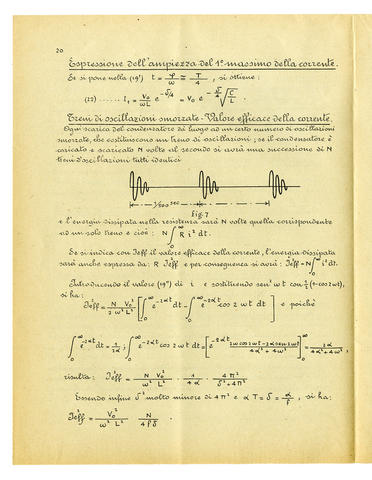 20
Espressione dell'ampiezza del 1° massimo della corrente.
Se si pone nella (19') t = φ/ω ≅ T/4, si ottiene:
(22) ..... I₁ = V₀/ωL e^(-δ/4) = V₀ e^(-δ/4) √(C/L) .
Treni di oscillazioni smorzate - Valore efficace della corrente.
Ogni scarica del condensatore dà luogo ad un certo numero di oscillazioni
smorzate, che costituiscono un treno di oscillazioni; se il condensatore è
caricato e scaricato N volte al secondo si avrà una successione di N
treni d'oscillazioni tutti identici
sec
fig. 7
e l'energia dissipata nella resistenza sarà N volte quella corrispondente
ad un solo treno e cioè: N ∫₀^∞ R i² dt.
Se si indica con Ieff il valore efficace della corrente, l'energia dissipata
sarà anche espressa da: R I²eff e per conseguenza si avrà: I²eff = N ∫₀^∞ i² dt.
Introducendo il valore (19") di i e sostituendo sen² ωt con ½ (1-cos 2ωt),
si ha:
I²eff = N/2 V₀²/ω² L² [∫₀^∞ e^(-2αt) dt - ∫₀^∞ e^(-2αt) cos 2ωt dt] e poichè
∫₀^∞ e^(-2αt) dt = 1/2α ; ∫₀^∞ e^(-2αt) cos 2ωt dt = [e^(-2αt) (2ω sen 2ωt - 2α cos 2ωt)/(4α² + 4ω²)]₀^∞ = 2α/(4α² + 4ω²) ,
risulta: I²eff = N/ω² V₀²/L² · 1/4α · 4π²/(δ² + 4π²)
Essendo infine δ² molto minore di 4π² e αT = δ = α/f , si ha:
I²eff = V₀²/ω² L² N/4fδ .